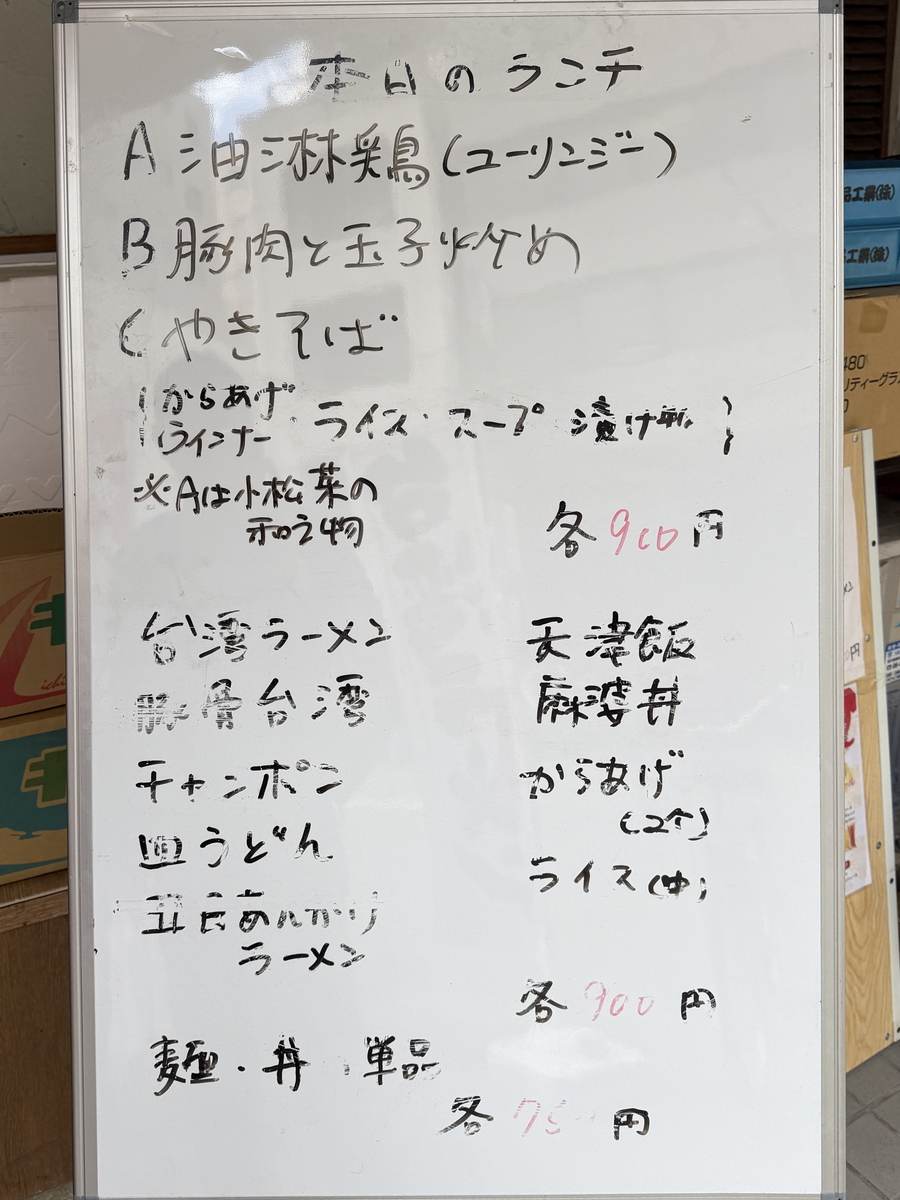 本日のランチ
A 油淋鶏(ユーリンジー)
B 豚肉と玉子炒め
C やきそば
からあげ
ウインナー・ライス・スープ 漬け物
※Aは小松菜の
和え物
各900円
台湾ラーメン
豚骨台湾
チャンポン
皿うどん
五目あんかけ
ラーメン
天津飯
麻婆丼
からあげ
(2ケ)
ライス(中)
各900円
麺・丼 単品
各 円
品工業(株)
工業(株)
480
リティーグラ